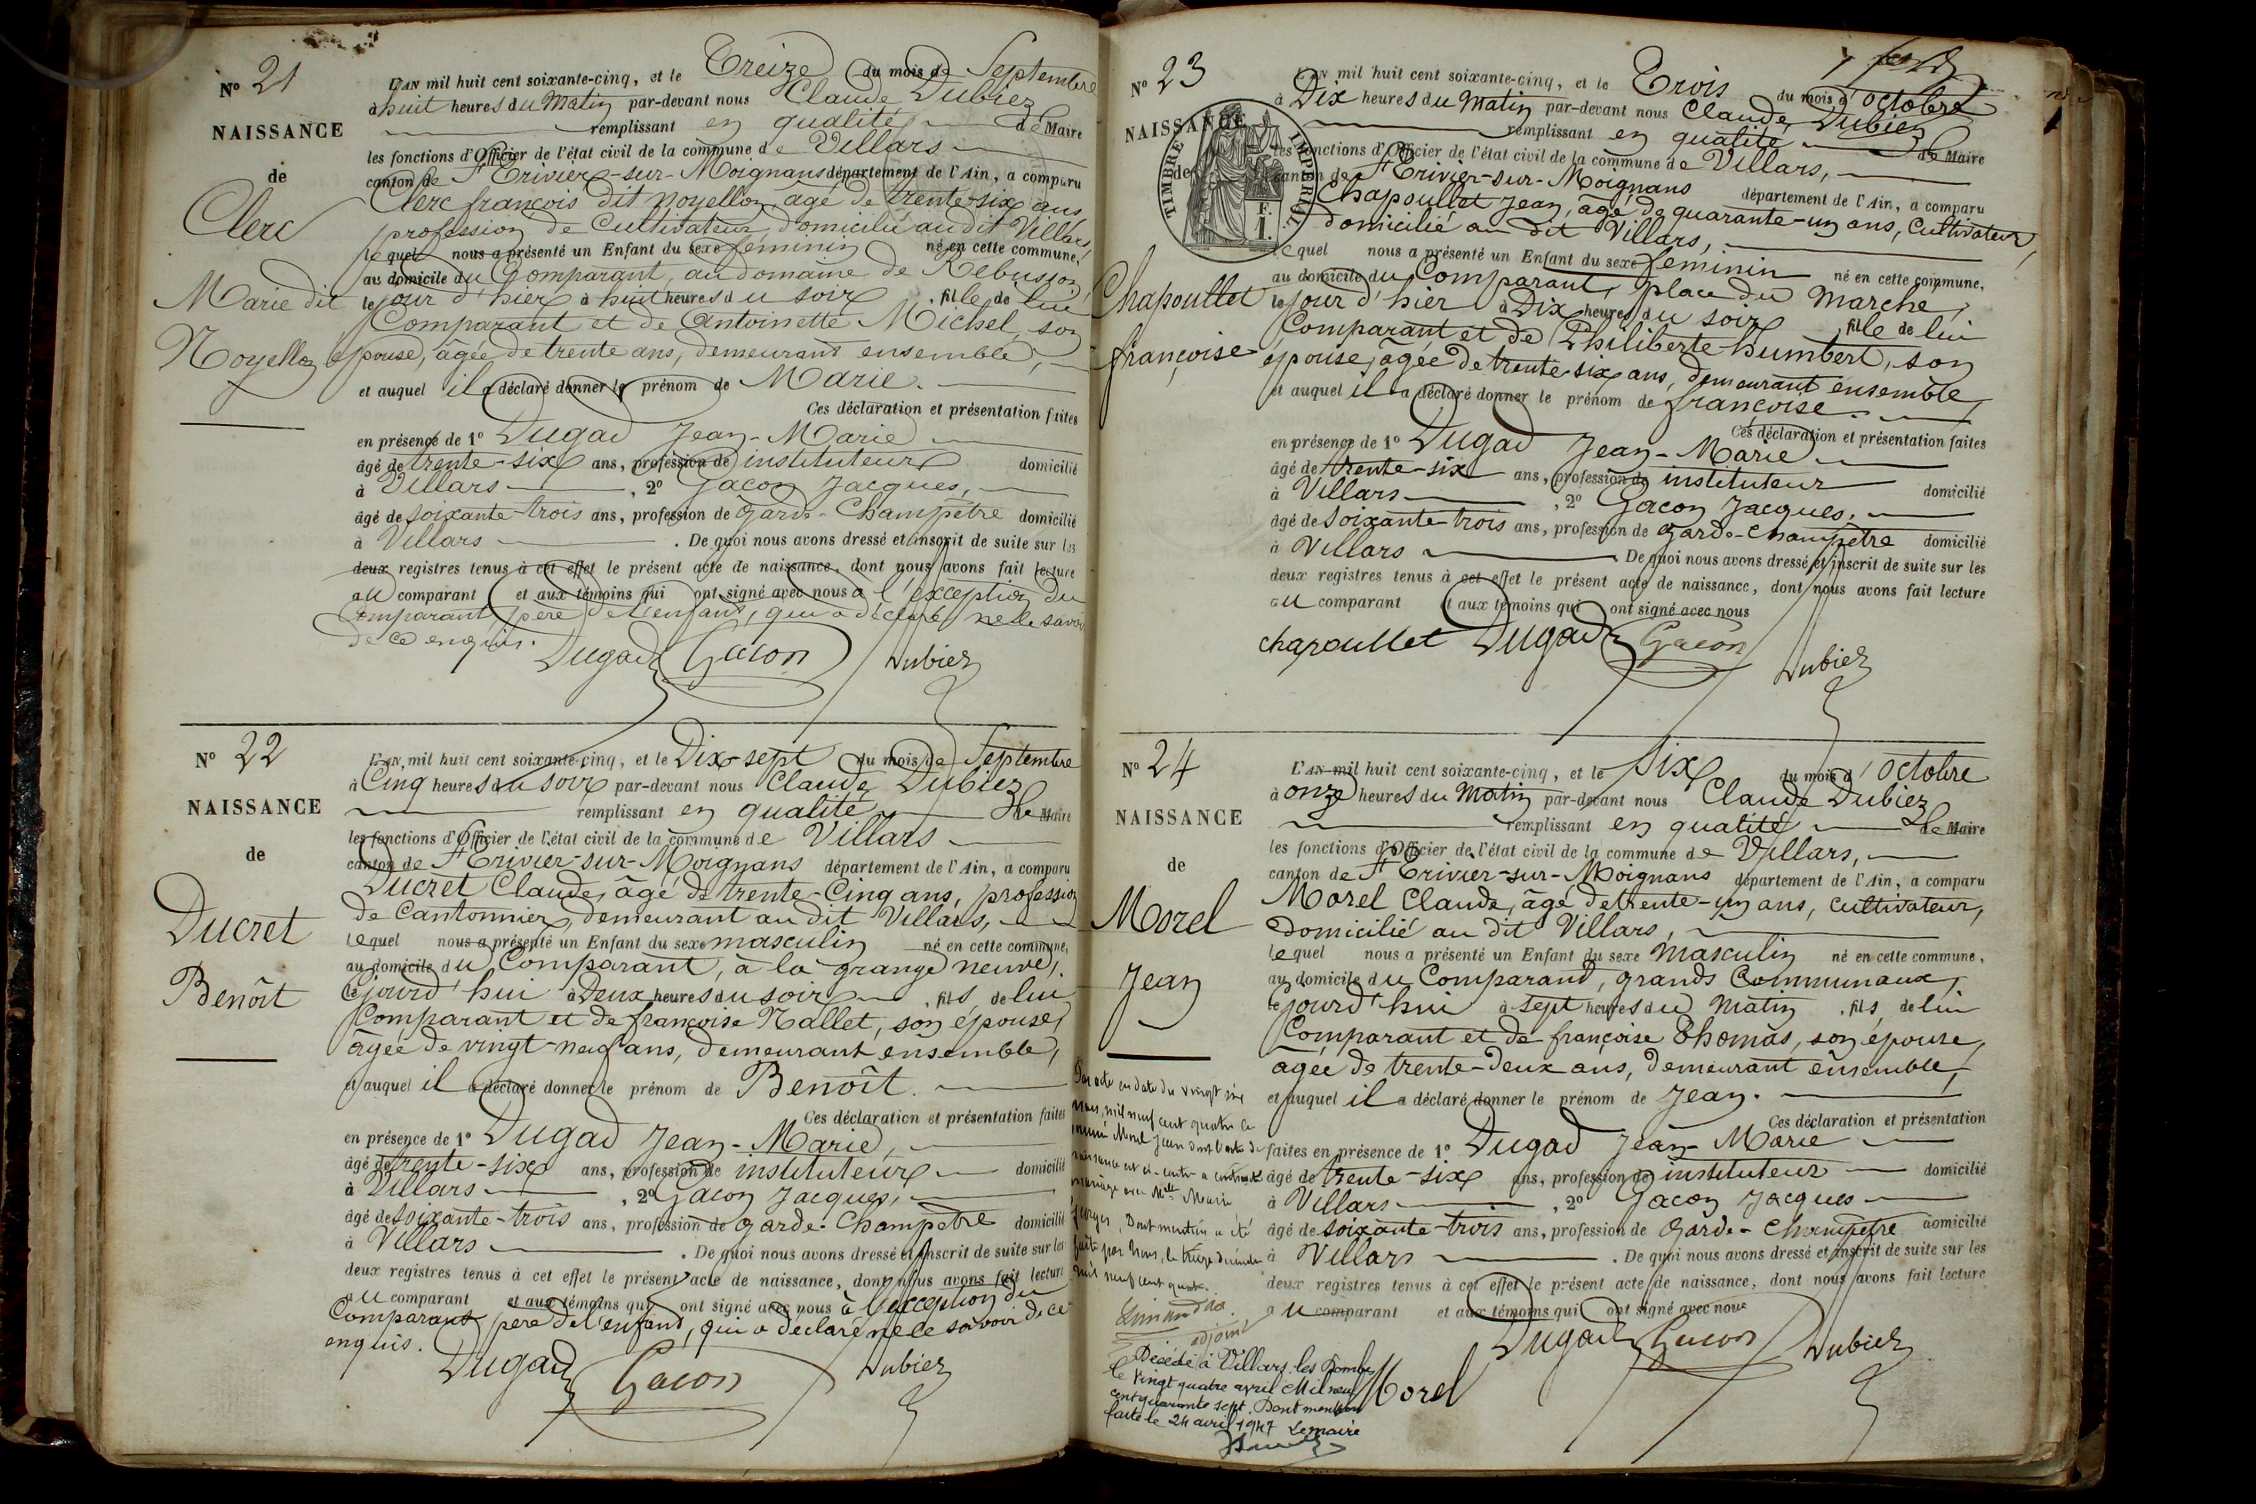 N° 21
NAISSANCE
de
Clerc
Marie dit
Noyellon
L'AN mil huit cent soixante-cinq, et le Treize du mois de Septembre
à huit heures du Matin par-devant nous Claude Dubiez
remplissant en qualité de Maire
les fonctions d'Officier de l'état civil de la commune de Villars
canton de St Trivier-sur-Moignans département de l'Ain, a comparu
Clerc françois dit Noyellon, âgé de trente-six ans,
profession de Cultivateur, domicilié au dit Villars,
lequel nous a présenté un Enfant du sexe féminin né en cette commune,
au domicile du Comparant, au domaine de Rebusson,
le jour d'hier à huit heures du soir, fille de lui
Comparant et de Antoinette Michel, son
épouse, âgée de trente ans, demeurant ensemble,
et auquel il a déclaré donner le prénom de Marie.
Ces déclaration et présentation faites
en présence de 1° Dugad Jean-Marie
âgé de trente-six ans, profession de instituteur domicilié
à Villars, 2° Gacon Jacques,
âgé de soixante-trois ans, profession de garde-Champêtre domicilié
à Villars. De quoi nous avons dressé et inscrit de suite sur les
deux registres tenus à cet effet le présent acte de naissance, dont nous avons fait lecture
au comparant et aux témoins qui ont signé avec nous à l'exception du
Comparant, père de l'enfant, qui a déclaré ne le savoir
de ce enquis.
Dugad Gacon Dubiez
N° 22
NAISSANCE
de
Ducret
Benoît
L'AN mil huit cent soixante-cinq, et le Dix-sept du mois de Septembre
à Cinq heures du soir par-devant nous Claude Dubiez
remplissant en qualité de Maire
les fonctions d'Officier de l'état civil de la commune de Villars
canton de St Trivier-sur-Moignans département de l'Ain, a comparu
Ducret Claude, âgé de trente-Cinq ans, profession
de Cantonnier, demeurant au dit Villars,
lequel nous a présenté un Enfant du sexe masculin né en cette commune,
au domicile du Comparant, à la grange neuve,
le jourd'hui à Deux heures du soir, fils de lui
Comparant et de françoise Nallet, son épouse,
âgée de vingt-neuf ans, demeurant ensemble,
et auquel il a déclaré donner le prénom de Benoît.
Ces déclaration et présentation faites
en présence de 1° Dugad Jean-Marie,
âgé de trente-six ans, profession de instituteur domicilié
à Villars, 2° Gacon Jacques,
âgé de soixante-trois ans, profession de garde-Champêtre domicilié
à Villars. De quoi nous avons dressé et inscrit de suite sur les
deux registres tenus à cet effet le présent acte de naissance, dont nous avons fait lecture
au comparant et aux témoins qui ont signé avec nous à l'exception du
Comparant, père de l'enfant, qui a déclaré ne le savoir de ce
enquis.
Dugad Gacon Dubiez
N° 23
NAISSANCE
de
TIMBRE IMPERIAL
Chapoullet
françoise
L'AN mil huit cent soixante-cinq, et le Trois du mois d'octobre
à Dix heures du Matin par-devant nous Claude Dubiez
remplissant en qualité de Maire
les fonctions d'Officier de l'état civil de la commune de Villars,
canton de St Trivier-sur-Moignans département de l'Ain, a comparu
Chapoullet Jean, âgé de quarante-un ans, Cultivateur,
domicilié au dit Villars,
lequel nous a présenté un Enfant du sexe féminin né en cette commune,
au domicile du Comparant, place du Marché,
le jour d'hier à Dix heures du soir fille de lui
Comparant et de Philiberte humbert, son
épouse, âgée de trente-six ans, demeurant ensemble,
et auquel il a déclaré donner le prénom de françoise.
Ces déclaration et présentation faites
en présence de 1° Dugad Jean-Marie
âgé de trente-six ans, profession de instituteur domicilié
à Villars, 2° Gacon Jacques,
âgé de soixante-trois ans, profession de garde-Champêtre domicilié
à Villars. De quoi nous avons dressé et inscrit de suite sur les
deux registres tenus à cet effet le présent acte de naissance, dont nous avons fait lecture
au comparant et aux témoins qui ont signé avec nous
chapoullet Dugad Gacon Dubiez
N° 24
NAISSANCE
de
Morel
Jean
L'AN mil huit cent soixante-cinq, et le Six du mois d'octobre
à onze heures du Matin par-devant nous Claude Dubiez
remplissant en qualité de Maire
les fonctions d'Officier de l'état civil de la commune de Villars,
canton de St Trivier-sur-Moignans département de l'Ain, a comparu
Morel Claude, âgé de trente-un ans, cultivateur,
Domicilié au dit Villars,
lequel nous a présenté un Enfant du sexe masculin né en cette commune,
au domicile du Comparant, grands Communaux,
le jourd'hui à sept heures du Matin, fils de lui
Comparant et de françoise Thomas, son épouse,
âgée de trente-deux ans, demeurant ensemble,
et auquel il a déclaré donner le prénom de Jean.
Ces déclaration et présentation
faites en présence de 1° Dugad Jean-Marie
âgé de trente-six ans, profession de instituteur domicilié
à Villars, 2° Gacon Jacques
âgé de soixante-trois ans, profession de garde-Champêtre domicilié
à Villars. De quoi nous avons dressé et inscrit de suite sur les
deux registres tenus à cet effet le présent acte de naissance, dont nous avons fait lecture
au comparant et aux témoins qui ont signé avec nous
Dugad Gacon Dubiez
Morel
Par acte en date du vingt six
mil neuf cent quatre le
Morel Jean dont l'acte de
naissance est ci-contre a contracté
mariage avec Mlle Marie
Dont mention a été
faite par Nous, le treize
mil neuf cent quatre.
adjoint
Décédé à Villars les Dombes
le Vingt quatre avril Mil neuf
cent quarante sept. Dont mention
faite le 24 avril 1947 Le maire